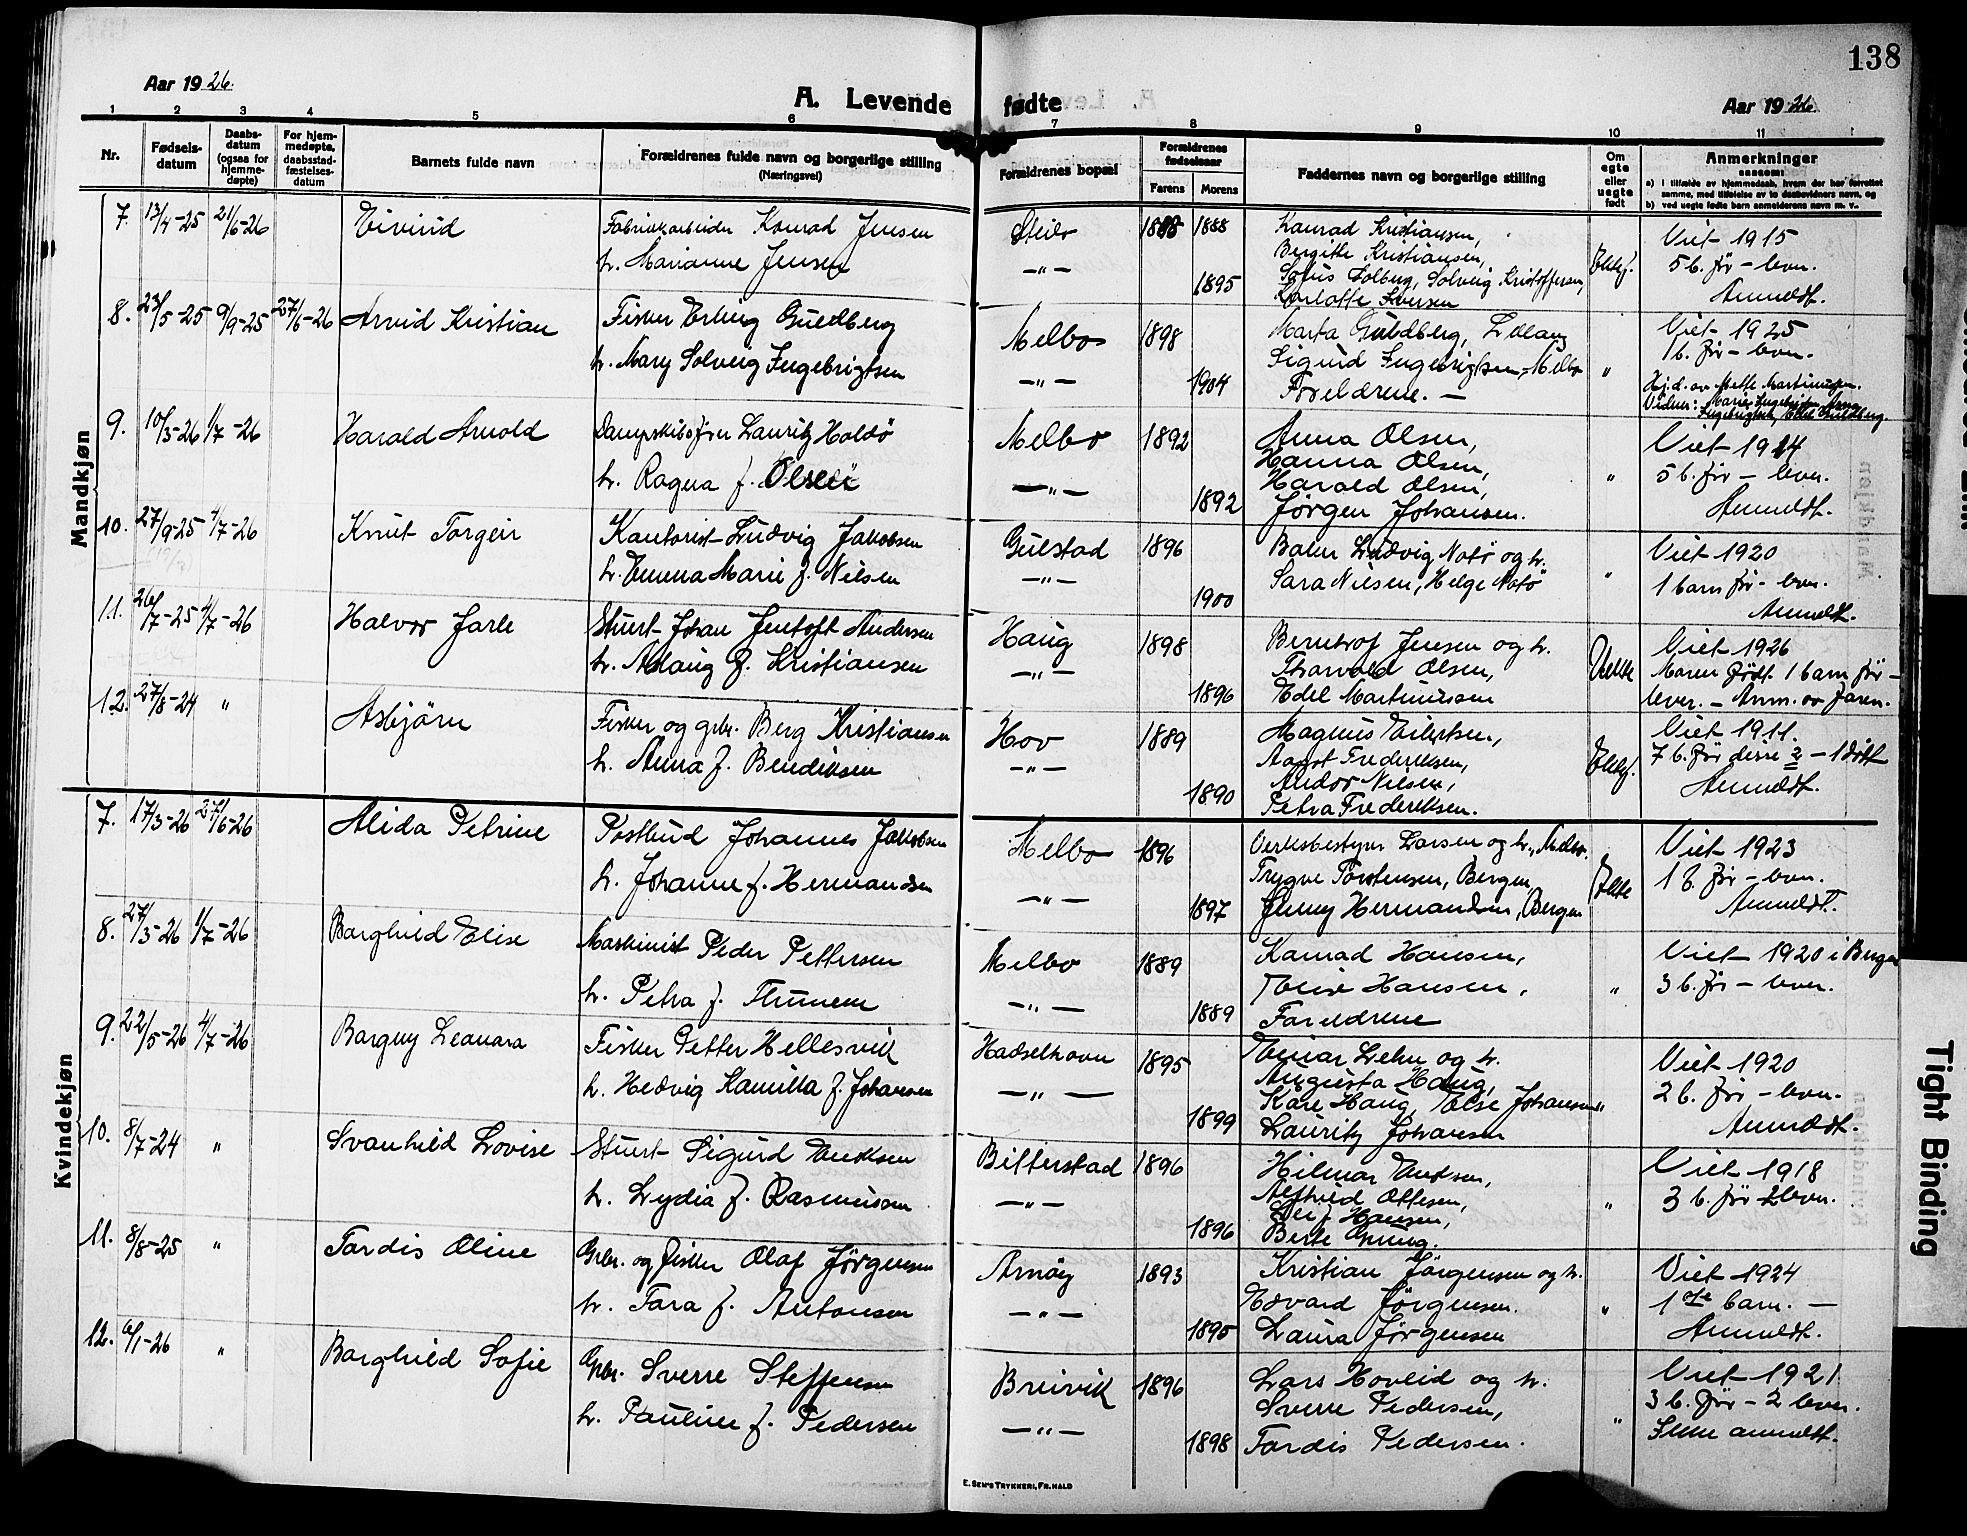 138
Aar 1926.
A. Levende fødte
Aar 1926.
1 2 3 4 5 6 7 8 9 10 11
Nr.
Fødsels-
datum
Daabs-
datum
(ogsaa for
hjemme-
døpte)
For hjem-
medøpte,
daabsstad-
fæstelses-
datum
Barnets fulde navn
Forældrenes fulde navn og borgerlige stilling
(Næringsvei)
Forældrenes bopæl
Forældrenes
fødselsaar
Farens Morens
Faddernes navn og borgerlige stilling
Om
egte
eller
uegte
født
Anmerkninger
saasom:
a) i tilfælde av hjemmedaab, hvem der har forrettet
samme, med tilføielse av to daabsvidners navn, og
b) ved uegte fødte barn anmelderens navn m. v.
Mandkjøn
7. 13/4-25 21/6-26 Eivind
Fabrikarbeider Konrad Jensen
h. Marianne Jensen
Steilo
—„—
1888 1888
1895
Konrad Kristiansen,
Bergitte Kristiansen,
Sofus Solberg, Solveig Kristoffersen,
Karlotte Iversen
Ektef.
Viet 1915
5 b. før – lever.
Anmeldt.
8. 23/5-25 9/9-25 27/6-26 Arvid Kristian
Fisker Erling Guldberg
h. Mary Solveig Ingebrigtsen
Melbo
—„—
1898
1904
Marta Guldberg,
Sigurd Ingebrigtsen, Melbo
Foreldrene. –
„
Viet 1925
1 b. før – lever.
Hj.d. av Mette Martinussen.
Vidner: Marie Ingebrigtsen,
Ingebrigtsen, Edel Guldberg
9. 10/3-26 1/7-26 Harald Arnold
Dampskibsfører Lauritz Holdö
h. Ragna f. Olsen
Melbo
—„—
1892
1892
Anna Olsen,
Hanna Olsen,
Harald Olsen,
Jørgen Johansen.
„
Viet 1914
5 b. før – lever.
Anmeldt.
10. 27/9-25 4/7-26 Knut Torgeir
Kontorist Ludvig Jakobsen
h. Emma Marie f. Nilsen
Gulstad
—„—
1896
1900
Baker Ludvig Notö og h.
Sara Nilsen, Helge Notö
„
Viet 1920
1 barn før – lever.
Anmeldt.
11. 26/7-25 4/7-26 Halvor Jarle
Stuert Johan Jentoft Andersen
h. Aslaug f. Kristiansen
Haug
—„—
1898
1896
Berntrof Jensen og h.
Thorvald Olsen,
Edel Martinussen
Uekte
Viet 1926
Moren født 1 barn før –
lever. – Anm. av faren.
12. 27/8-24 „ Asbjørn
Fisker og gbr. Berg Kristiansen
h. Anna f. Bendiksen
Hov
—„—
1889
1890
Magnus Eilertsen,
Aagot Frederiksen,
Andor Nilsen,
Petra Frederiksen.
Ektef.
Viet 1911.
7 b. før disse 2 – 1 dött
Anmeldt.
Kvindekjøn
7. 17/3-26 27/6-26 Alida Petrine
Postbud Johannes Jakobsen
h. Johanne f. Hermandsen
Melbo
—„—
1896
1897
Verksbestyrer Larsen og h., Melbo.
Trygve Torstensen, Bergen
Jenny Hermandsen, Bergen
Ekte
Viet 1923
1 b. før – lever.
Anmeldt.
8. 27/3-26 1/7-26 Borghild Elise
Maskinist Peder Pettersen
h. Petra f. Thunem
Melbo
—„—
1889
1889
Konrad Hansen,
Elise Hansen,
Foreldrene
„
Viet 1920 i Bergen
3 b. før – lever.
9. 22/5-26 4/7-26 Borgny Leonora
Fisker Petter Hellesvik
h. Hedvig Kamilla f. Johansen
Hadselhavn
—„—
1895
1899
Einar Lehn og h.
Augusta Haug,
Kåre Haug, Else Johansen
Lauritz Johansen
„
Viet 1920
2 b. før – lever.
Anmeldt.
10. 8/7-24 „ Svanhild Lovise
Stuert Sigurd Endresen
h. Lydia f. Rasmussen
Bitterstad
—„—
1896
1896
Hilmar
Alfhild Ottesen,
Hansen,
Berte
„
Viet 1918
3 b. før 2 lever.
11. 8/8-25 „ Tordis Oline
Gbr. og fisker Olaf Jörgensen
h. Tora f. Antonsen
Arnöy
—„—
1893
1895
Kristian Jörgensen og h.
Edvard Jörgensen.
Laura Jörgensen
„
Viet 1924
1ste barn. –
Anmeldt.
12. 6/1-26 „ Borghild Sofie
Gbr. Sverre Steffensen
h. Pauline f. Pedersen
Breivik
—„—
1896
1898
Lars Hovlid og h.
Sverre Pedersen,
Tordis Pedersen.
„
Viet 1921
3 b. før – 2 lever.
Ikke anmeldt.
E. SEM'S TRYKKERI, FR.HALD
Tight Binding